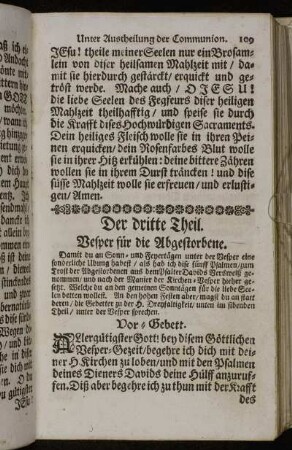 Unter Austheilung der Communion. 109
JEsu! theile meiner Seelen nur ein Brosam-
lein von diser heilsamen Mahlzeit mit / da-
mit sie hierdurch gestärckt / erquickt und ge-
tröst werde. Mache auch / O JESU!
die liebe Seelen des Fegfeurs diser heiligen
Mahlzeit theilhafftig / und speise sie durch
die Krafft dises Hochwürdigen Sacraments.
Dein heiliges Fleisch wolle sie in ihren Pei-
nen erquicken / dein Rosenfarbes Blut wolle
sie in ihrer Hitz erkühlen: deine bittere Zähren
wollen sie in ihrem Durst träncken! und dise
süsse Mahlzeit wolle sie erfreuen / und erlusti-
gen / Amen.
Der dritte Theil.
Vesper für die Abgestorbene.
Damit du an Sonn- und Feyertägen unter der Vesper eine
sonderliche Ubung habest / als hab ich dise fünff Psalmen / zum
Trost der Abgestorbenen aus dem Psalter Davids
genommen / und nach der Manier der Kirchen-Vesper hieher ge-
setzt. Welche du an den gemeinen Sonntägen für die liebe See-
len betten wollest. An den hohen Festen aber / magst du an statt
deren / die Gebetter zu der H. Dreyfaltigkeit / unten im sibenden
Theil / unter der Vesper sprechen.
Vor-Gebett.
ALlergütigster Gott! bey disem Göttlichen
Vesper-Gezeit / begehre ich dich mit dei-
ner H. Kirchen zu loben / und mit den Psalmen
deines Dieners Davids deine Hülff anzuruf-
fen. Diß aber begehre ich zu thun mit der Krafft
des